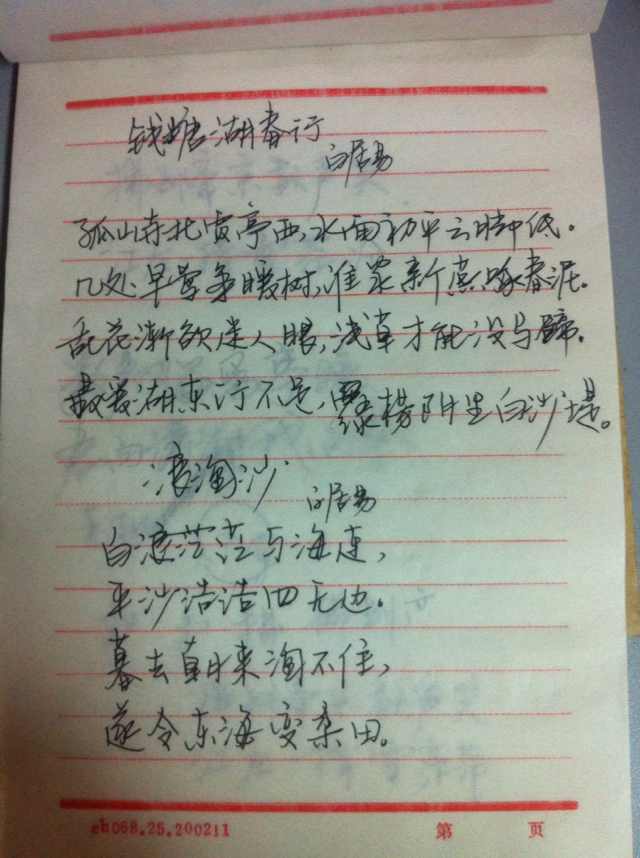 钱塘湖春行
白居易
孤山寺北贾亭西,水面初平云脚低。
几处早莺争暖树,谁家新燕啄春泥。
乱花渐欲迷人眼,浅草才能没马蹄。
最爱湖东行不足,绿杨阴里白沙堤。
浪淘沙
白居易
白浪茫茫与海连,
平沙浩浩四无边。
暮去朝来淘不住,
遂令东海变桑田。
eh068.25.200211
第 页